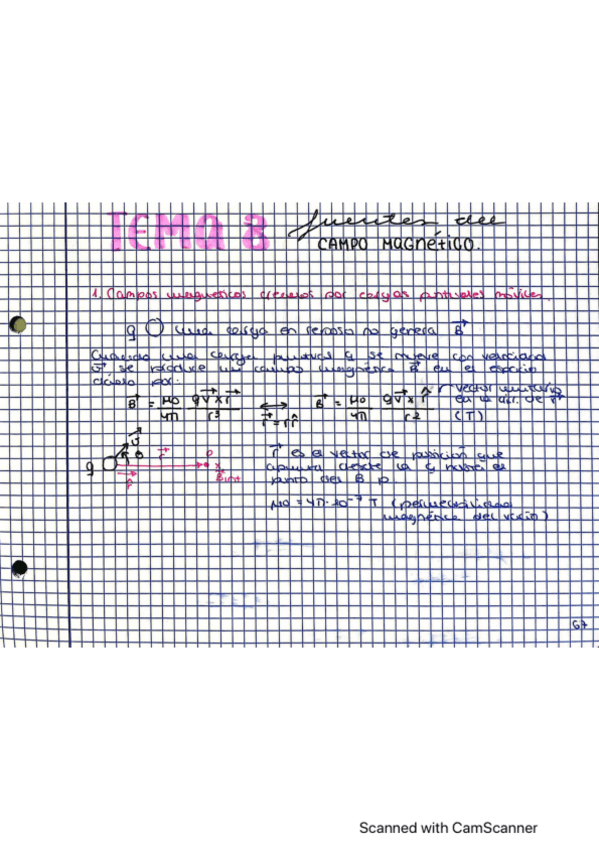 TEMA 8 fuentes del
CAMPO MAGNÉTICO.
1. Campos magnéticos creados por cargas puntuales móviles.
q una carga en reposo no genera B⃗
Cuando una carga puntual q se mueve con velocidad
v⃗ se produce un campo magnético B⃗ en el espacio
dado por:
B⃗ = μ0/4π qv⃗×r⃗/r³ ⟷ r⃗ = rr̂ B⃗ = μ0/4π qv⃗×r̂/r² r̂ vector unitario en la dir. de r⃗ (T)
q v⃗ θ r⃗ r̂ P x
r⃗ es el vector de posición que
apunta desde la q hasta el
punto del B p
μ0 = 4π·10⁻⁷ T (permeabilidad
magnética del vacío)
67
Scanned with CamScanner